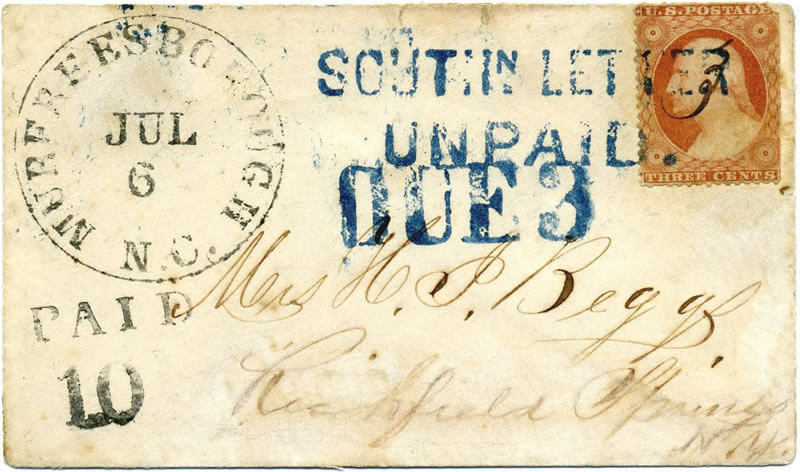 MURFREESBOROUGH
JUL
6
N.C.
PAID
10
SOUTHN LETTER
UNPAID.
DUE 3
U.S. POSTAGE
THREE CENTS
Mrs H. J. Beggs
Richfield Springs
N.Y.